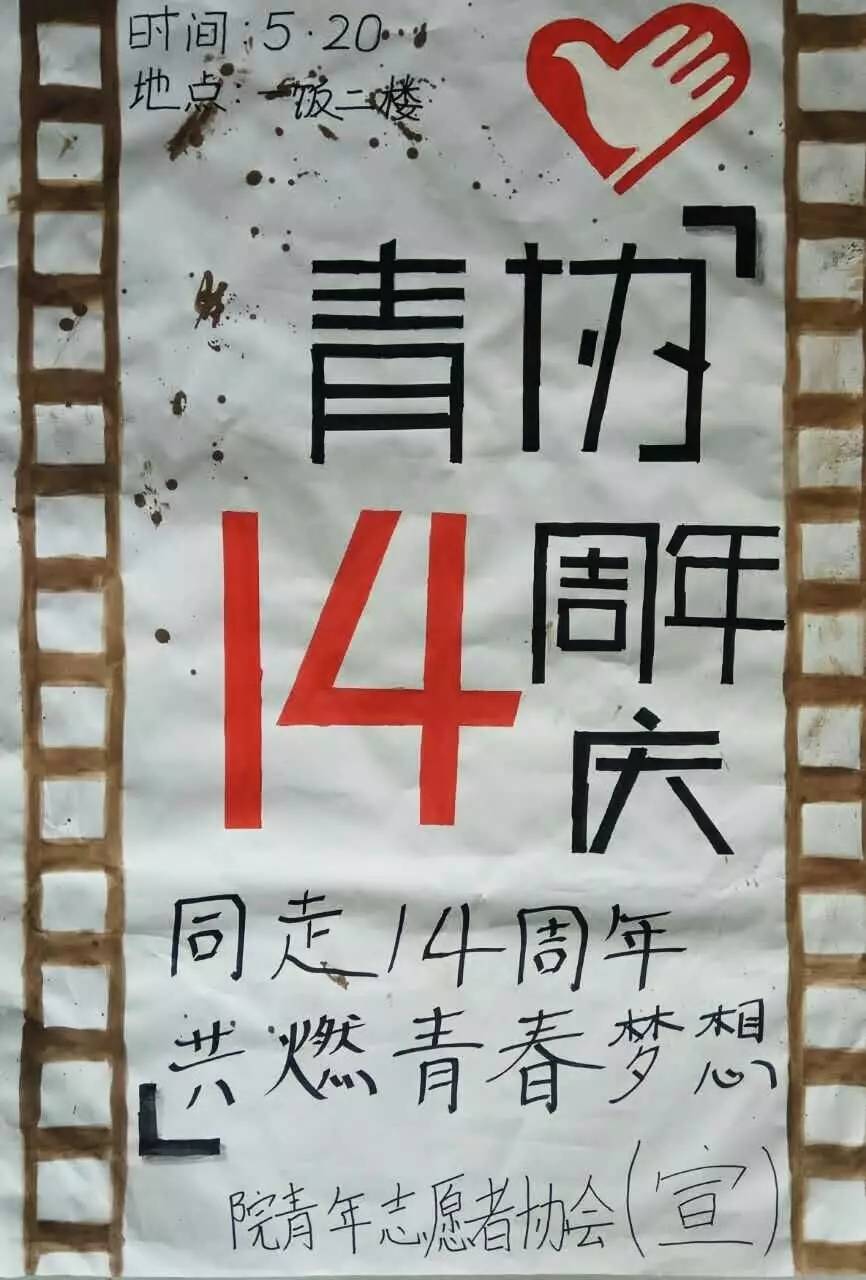 时间:5·20
地点:一饭二楼
青协
14周年
庆
同走14周年
共燃青春梦想
院青年志愿者协会(宣)